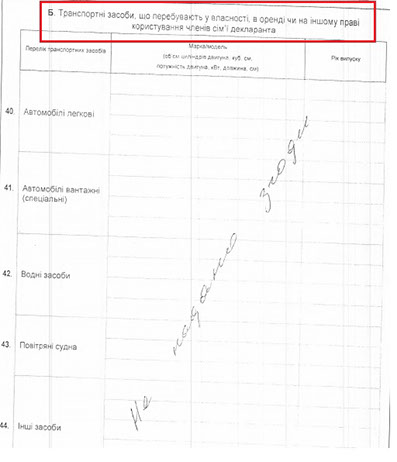 Б. Транспортні засоби, що перебувають у власності, в оренді чи на іншому праві
користування членів сім'ї декларанта
Перелік транспортних засобів
Марка/модель
(об'єм циліндрів двигуна, куб. см,
потужність двигуна, кВт, довжина, см)
Рік випуску
40. Автомобілі легкові
41. Автомобілі вантажні
(спеціальні)
42. Водні засоби
43. Повітряні судна
44. Інші засоби
Не надано згоди